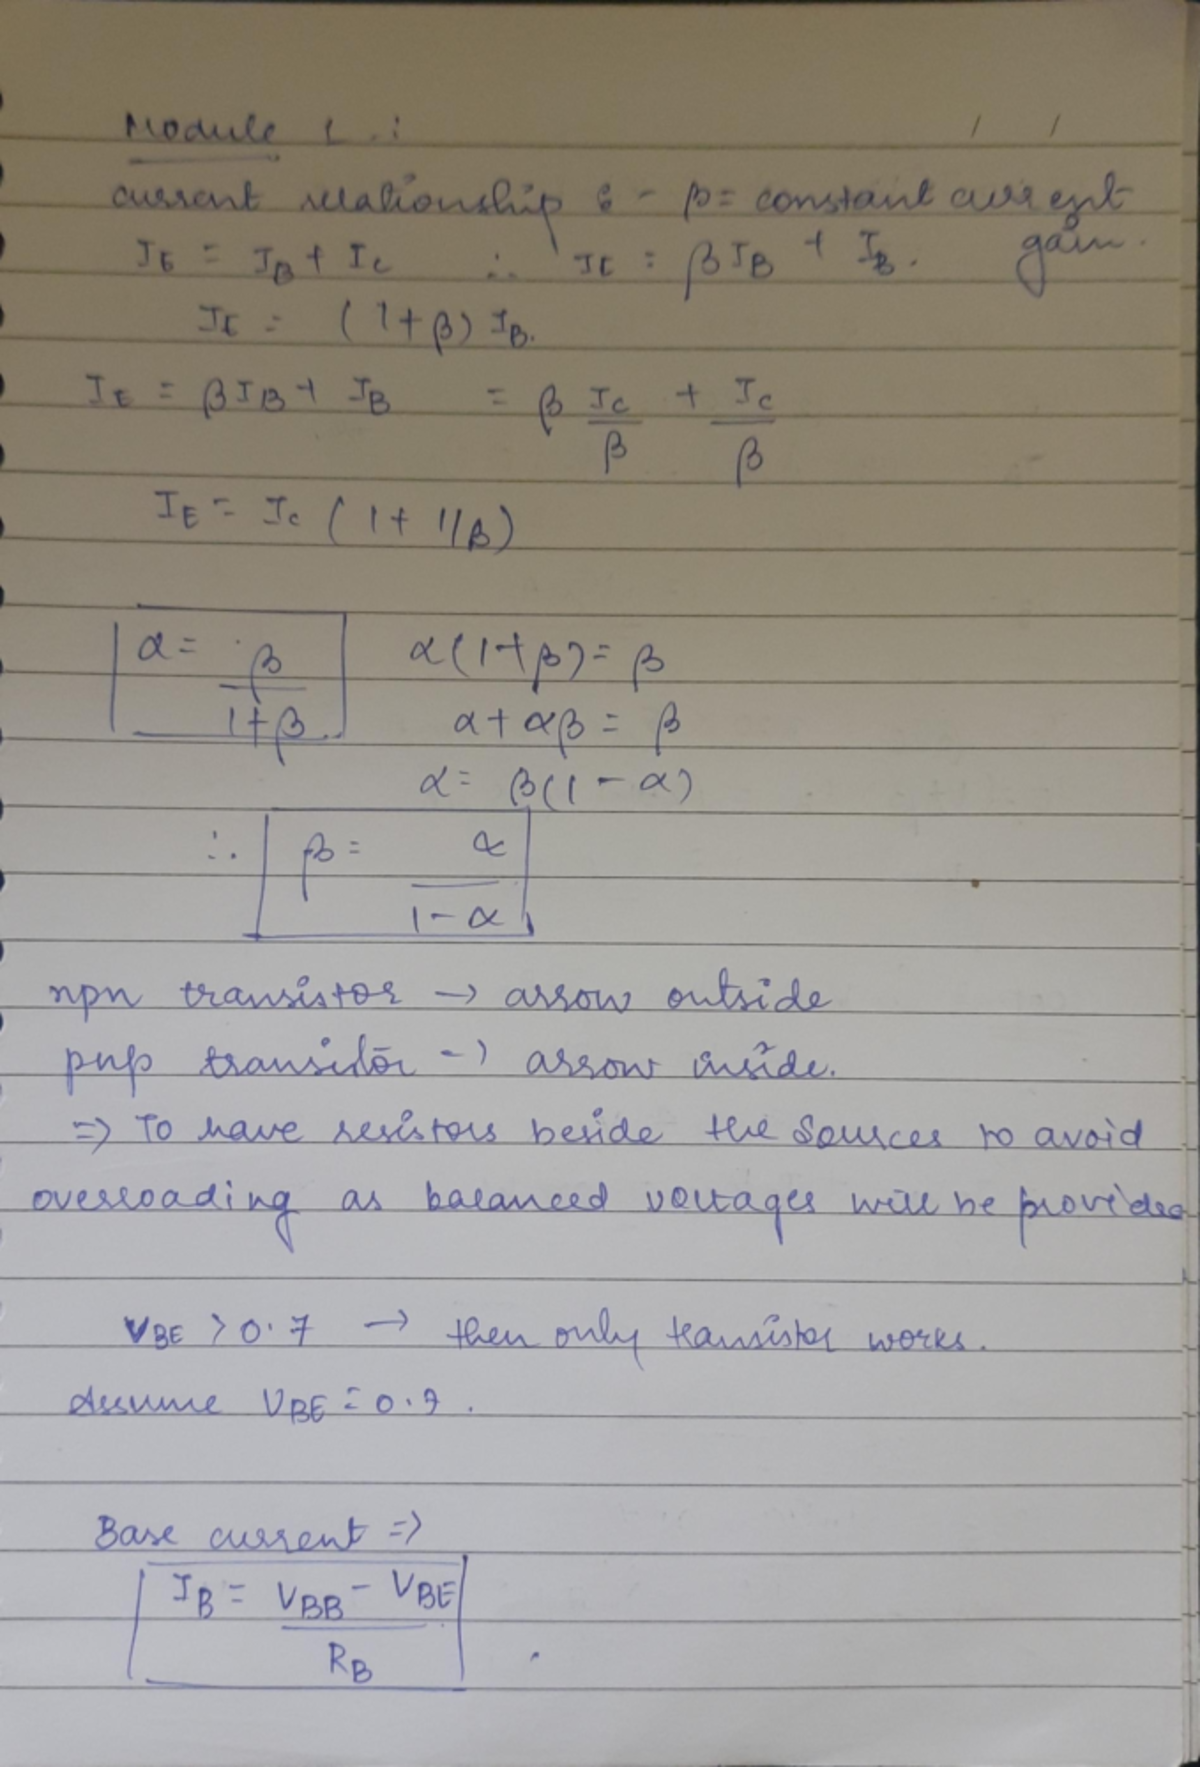 Module 1 :
/ /
current relationship :- β = constant current
gain.
I_E = I_B + I_C ∴ I_E = βI_B + I_B.
I_E = (1+β) I_B.
I_E = βI_B + I_B = β I_C/β + I_C/β
I_E = I_C (1 + 1/β)
α = β/(1+β) α(1+β) = β
α + αβ = β
α = β(1 - α)
∴ β = α/(1-α)
npn transistor → arrow outside
pnp transistor → arrow inside.
⇒ To have resistors beside the sources to avoid
overloading as balanced voltages will be provided
V_BE > 0.7 → then only transistor works.
Assume V_BE = 0.7.
Base current ⇒
I_B = (V_BB - V_BE)/R_B